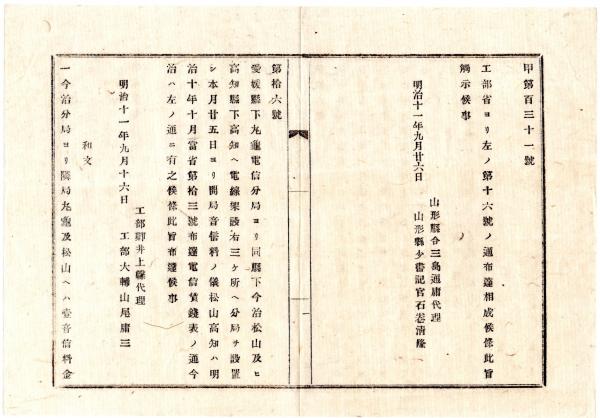 甲第百三十一號
工部省ヨリ左ノ第十六號ノ通布達相成候條此旨
觸示候事
明治十一年九月廿六日
山形縣令三島通庸代理
山形縣少書記官石巻清隆
第拾六號
愛媛縣下丸龜電信分局ヨリ同縣下今治松山及ヒ
高知縣下高知ヘ電線架設右三ケ所ヘ分局ヲ設置
シ本月廿五日ヨリ開局音信料ノ儀松山高知ハ明
治十年十月當省第拾三號布達電信賃錢表ノ通今
治ハ左ノ通ニ有之候條此旨布達候事
工部卿井上馨代理
明治十一年九月十六日
工部大輔山尾庸三
和文
一今治分局ヨリ隣局丸龜及松山ヘハ壹音信料金